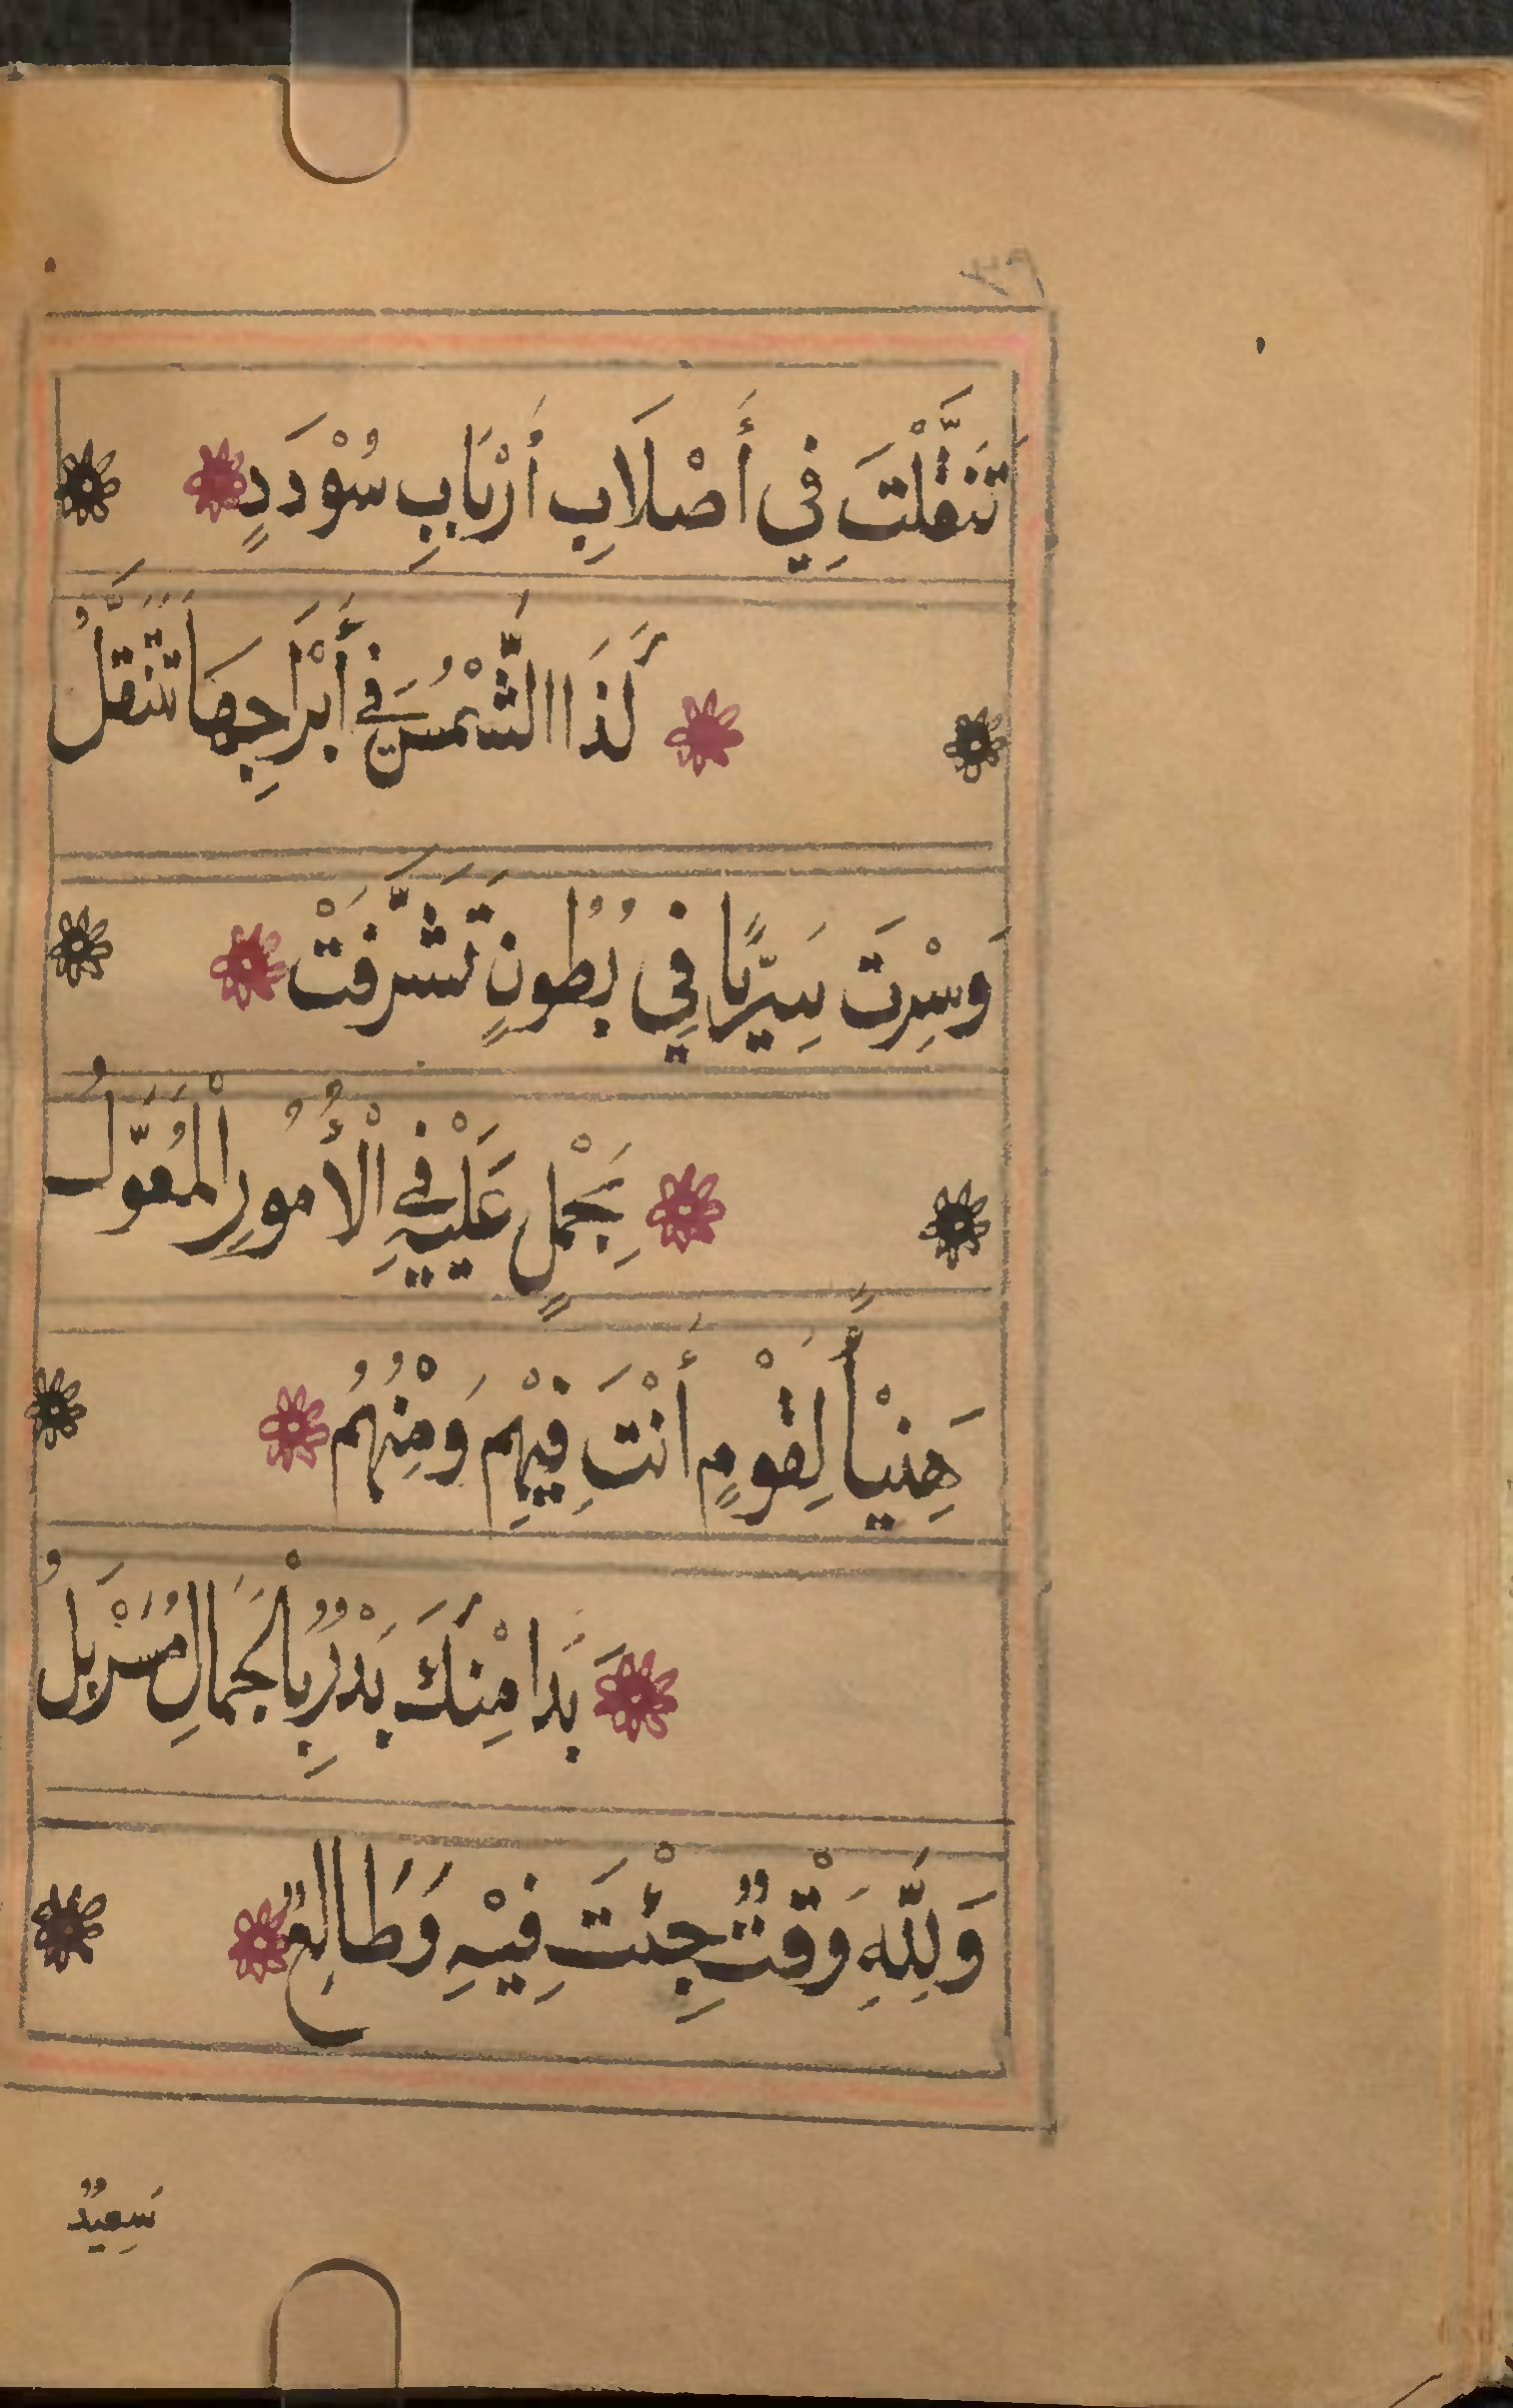 تَنَقَّلْتَ فِي أَصْلَابِ أَرْبَابِ سُوْدَدٍ
كَذَا الشَّمْسُ فِي أَبْرَاجِهَا تَتَنَقَّلُ
وَسِرْتَ سَرِيًّا فِي بُطُونٍ تَشَرَّفَتْ
بِحَمْلٍ عَلَيْهِ فِي الْأُمُورِ الْمُعَوَّلُ
هَنِيْأً لِقَوْمٍ أَنْتَ فِيْهِمْ وَمِنْهُمُ
بَدَا مِنْكَ بَدْرٌ بِالْجَمَالِ مُسَرْبَلُ
وَلِلّٰهِ وَقْتٌ جِئْتَ فِيْهِ وَطَالِعٌ
سَعِيْدٌ